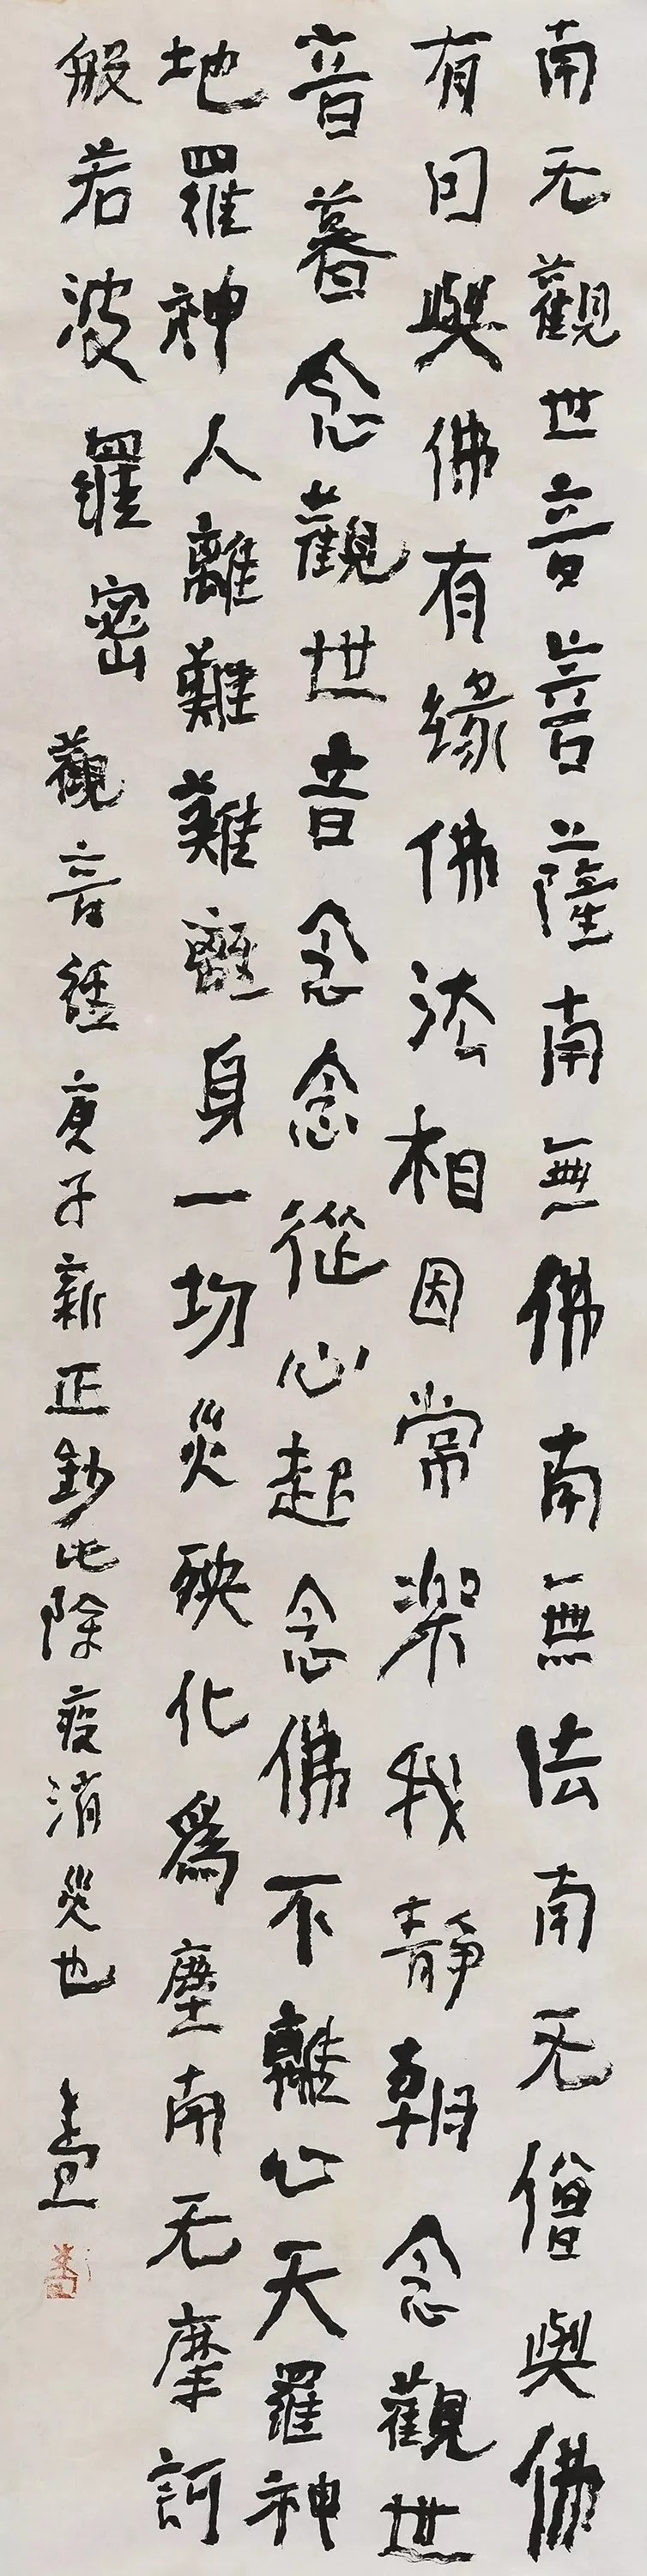 南无觀世音菩薩南無佛南無法南无僧與佛
有因與佛有緣佛法相因常樂我靜朝念觀世
音暮念觀世音念念從心起念佛不離心天羅神
地羅神人離難難離身一切災殃化為塵南无摩訶
般若波羅密
觀音經庚子新正鈔此除疫消災也